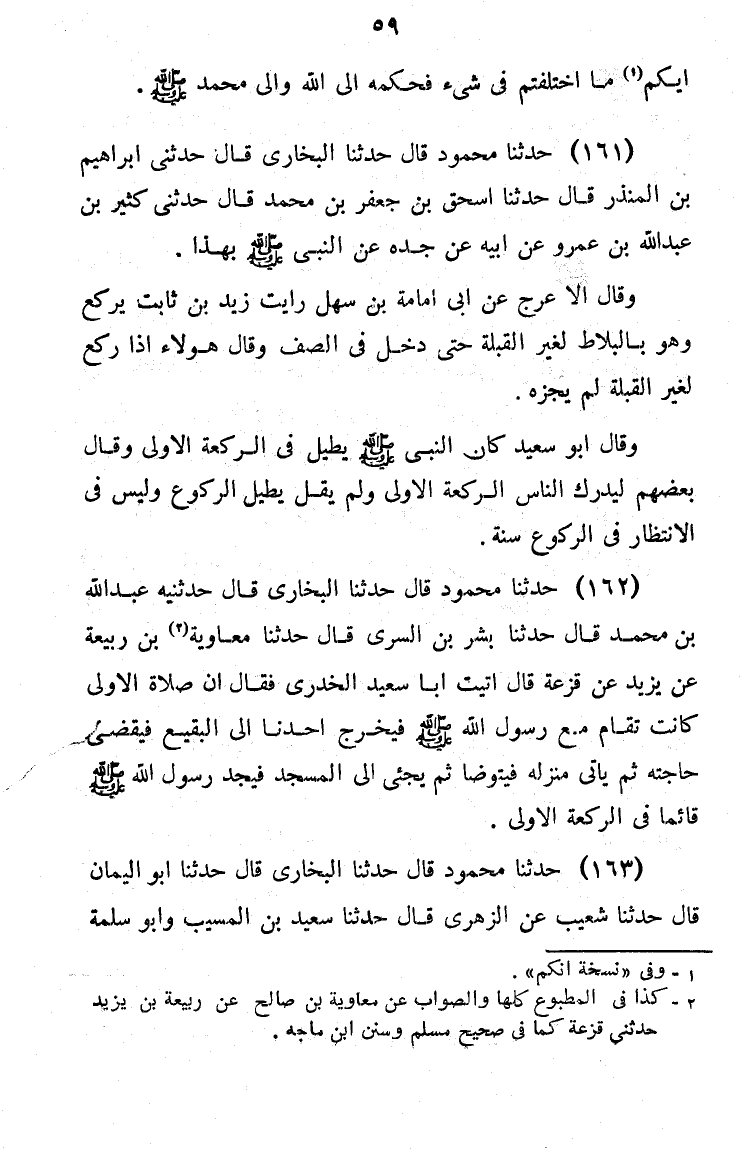 ٥٩
ايكم(١) ما اختلفتم فى شىء فحكمه الى الله والى محمد ﷺ .
(١٦١) حدثنا محمود قال حدثنا البخارى قال حدثنى ابراهيم
بن المنذر قال حدثنا اسحق بن جعفر بن محمد قال حدثنى كثير بن
عبدالله بن عمرو عن ابيه عن جده عن النبى ﷺ بهذا .
وقال الا عرج عن ابى امامة بن سهل رايت زيد بن ثابت يركع
وهو بالبلاط لغير القبلة حتى دخل فى الصف وقال هولاء اذا ركع
لغير القبلة لم يجزه .
وقال ابو سعيد كان النبى ﷺ يطيل فى الركعة الاولى وقال
بعضهم ليدرك الناس الركعة الاولى ولم يقل يطيل الركوع وليس فى
الانتظار فى الركوع سنة .
(١٦٢) حدثنا محمود قال حدثنا البخارى قال حدثنيه عبدالله
بن محمد قال حدثنا بشر بن السرى قال حدثنا معاوية(٢) بن ربيعة
عن يزيد عن قزعة قال اتيت ابا سعيد الخدرى فقال ان صلاة الاولى
كانت تقام مع رسول الله ﷺ فيخرج احدنا الى البقيع فيقضى
حاجته ثم ياتى منزله فيتوضا ثم يجئى الى المسجد فيجد رسول الله ﷺ
قائما فى الركعة الاولى .
(١٦٣) حدثنا محمود قال حدثنا البخارى قال حدثنا ابو اليمان
قال حدثنا شعيب عن الزهرى قال حدثنا سعيد بن المسيب وابو سلمة
١ - وفى «نسخة انكم» .
٢ - كذا فى المطبوع كلها والصواب عن معاوية بن صالح عن ربيعة بن يزيد
حدثني قزعة كما فى صحيح مسلم وسنن ابن ماجه .